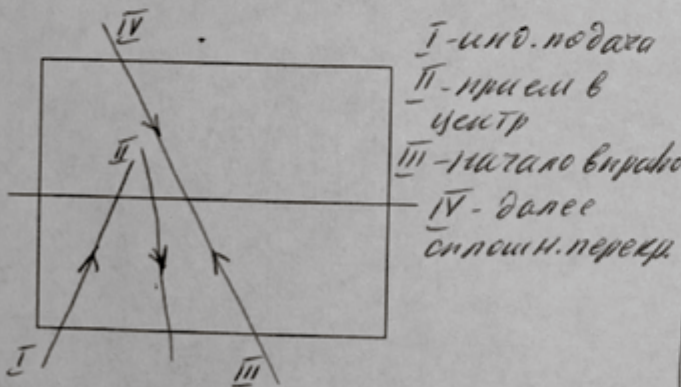 IV
I - инд. подача
II - прием в
центр
II
III - начало вправо
IV - далее
сплошн. перекр.
I
III